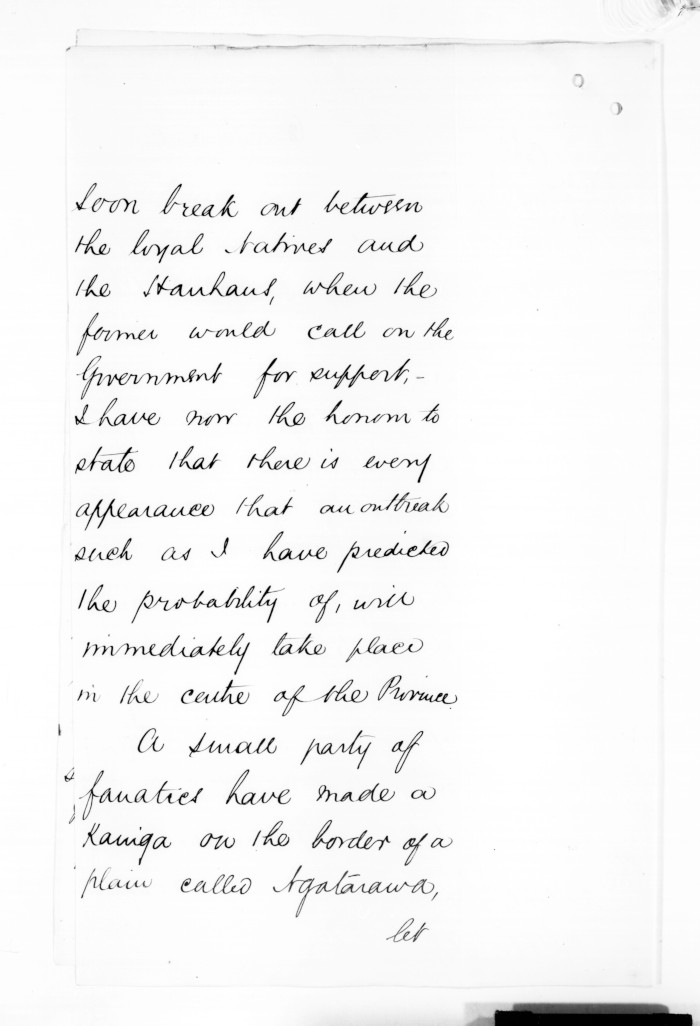 soon break out between
the loyal Natives and
the Hauhaus, when the
former would call on the
Government for support,-
I have now the honor to
state that there is every
appearance that an outbreak
such as I have predicted
the probability of, will
immediately take place
in the centre of the Province.
A small party of
fanatics have made a
Kainga on the border of a
plain called Ngatarawa,